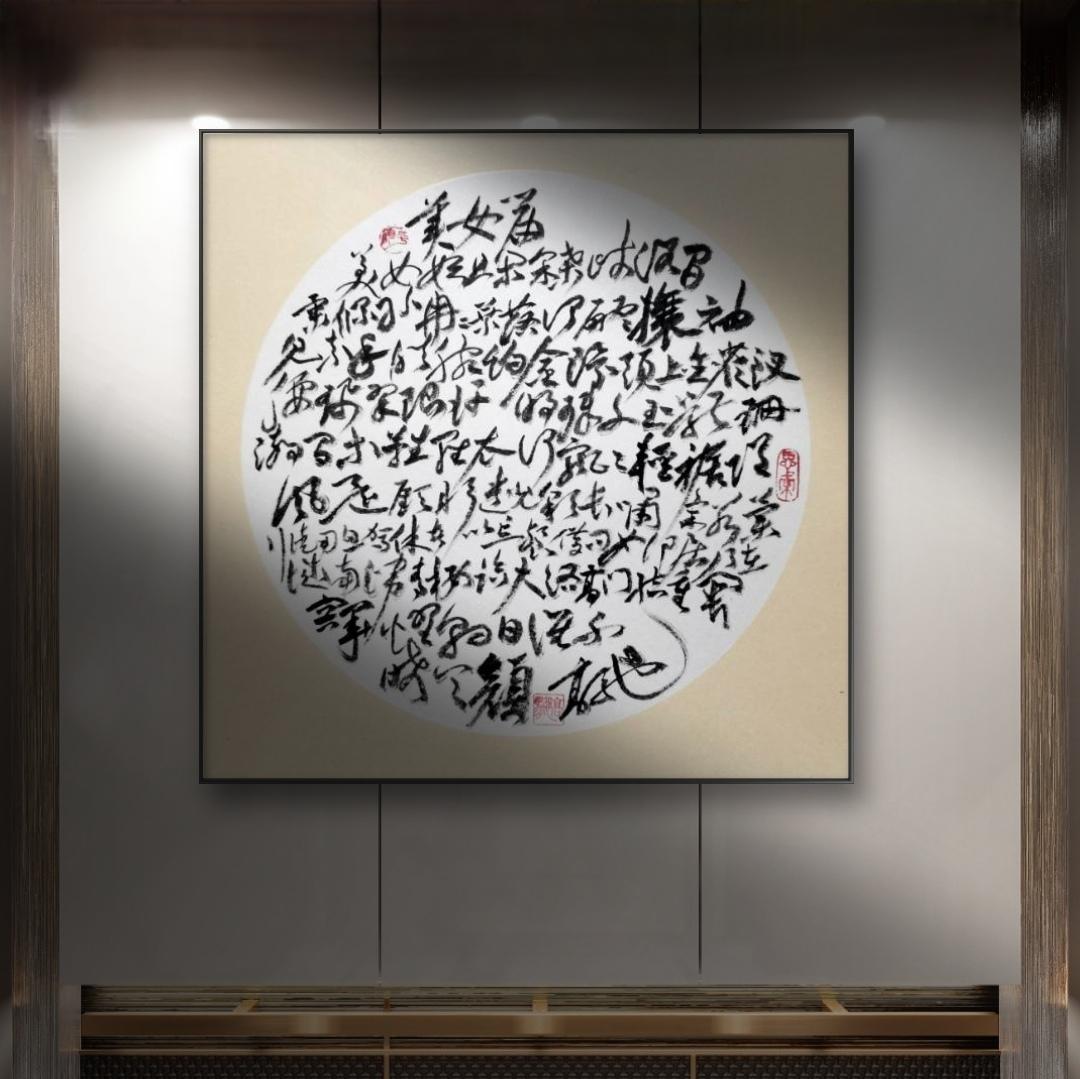 美女篇
美女妖且闲采桑歧路间
柔条纷冉冉叶何翩翩攘袖
见素手皓腕约金环头上金爵钗
腰佩翠琅玕明珠交玉体珊
瑚间木难罗衣何飘飘轻裾随
风还顾盼遗光采长啸气若兰
行徒用息驾休者以忘餐借问女居乃在
城南端青楼临大路高门结重关
容华耀朝日谁不
希令颜